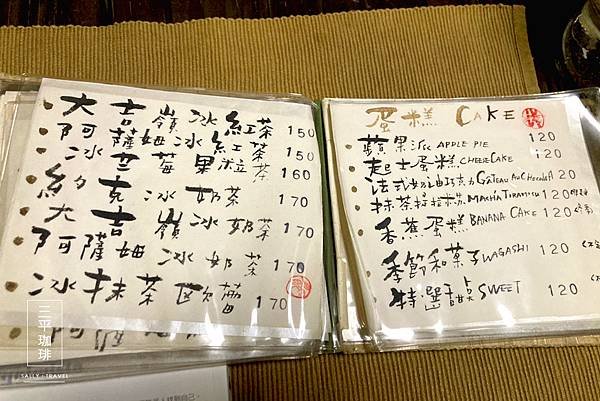 大吉嶺冰紅茶 150
阿薩姆冰紅茶 150
冰芒莓果粒茶 160
約克冰奶茶 170
大吉嶺冰奶茶 170
阿薩姆冰奶茶 170
冰抹茶欧蕾 170
蛋糕 CAKE
蘋果派 APPLE PIE 120
起士蛋糕 CHEESE CAKE 120
法式奶油巧克力 GÂTEAU AU CHOCOLA 120
抹茶提拉米蘇 MACHA TIRAMISU 120
香蕉蛋糕 BANANA CAKE 120
季節和菓子 WAGASHI 120
特選甜点 SWEET 120
三平珈琲
SALLY TRAVEL